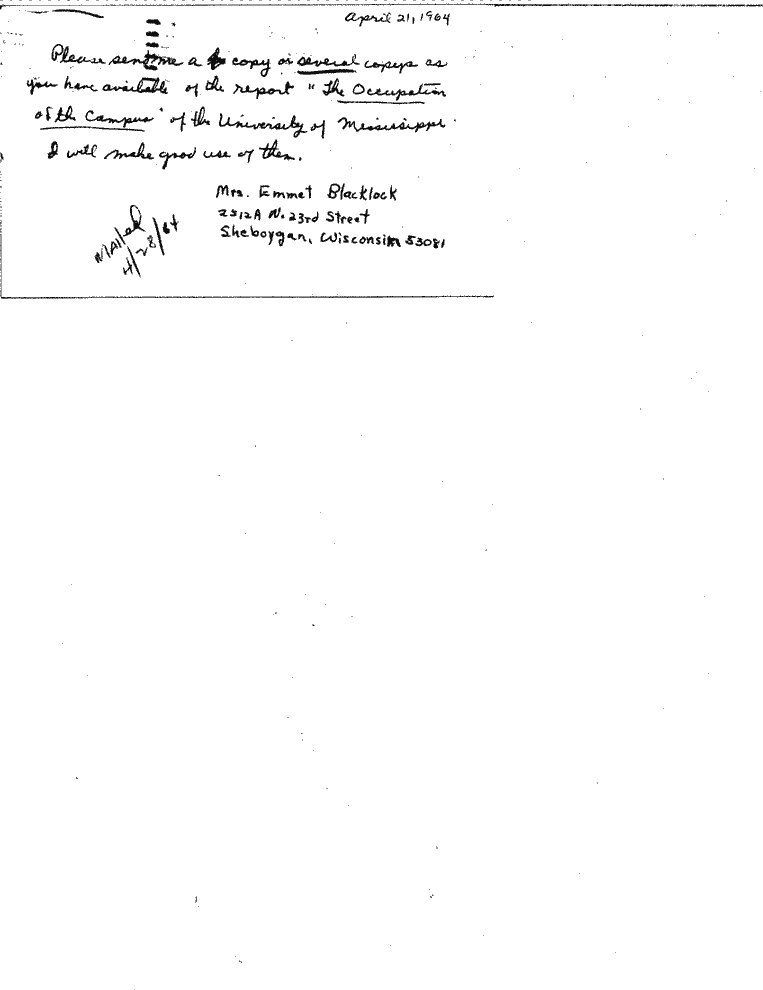 April 21, 1964
Please send me a copy or several copys as
you have available of the report "The Occupation
of the Campus" of the University of Mississippi.
I will make good use of them.
Mrs. Emmet Blacklock
2512A N. 23rd Street
Sheboygan, Wisconsin 53081
Mailed
4/28/64